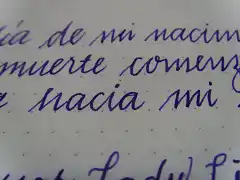 ía de mi nacim
muerte comenz
hacia mi